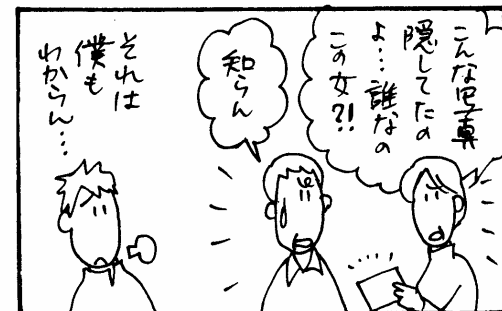 こんな写真
隠してたの
よ…誰なの
この女?!
知らん
それは
僕も
わからん…